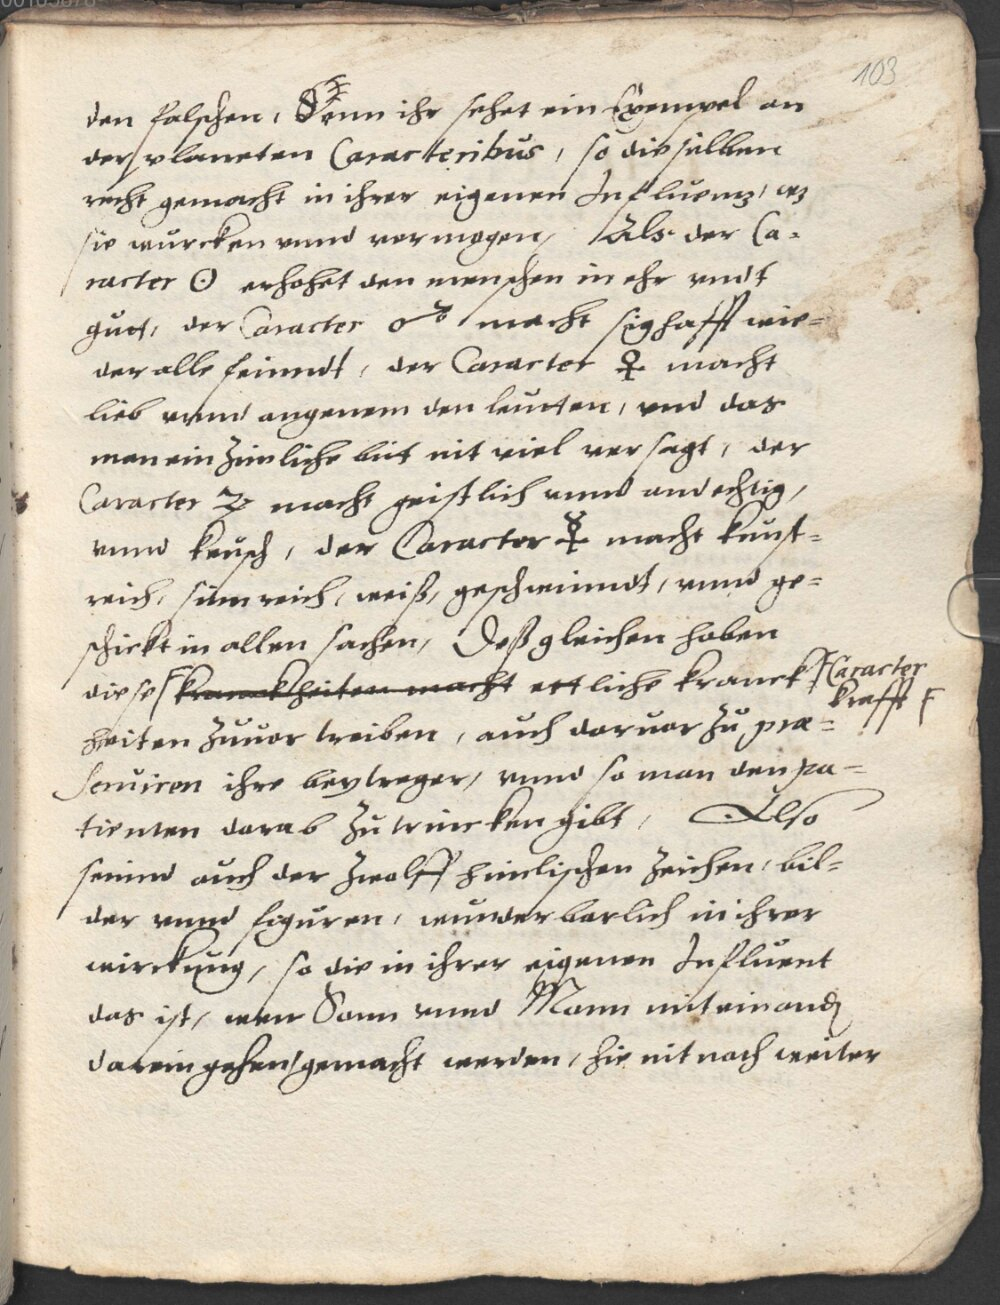 103
den falschen, Denn ihr sehet ein Exempel an
der planeten Caracteribus, so die selben
recht gemacht in ihrer eigenen Influentz, wz
sie wurcken unnd vermogen, Als der Ca-
racter ☉ erhohet den menschen in ehr undt
guot, der Caracter ♂ macht sighafft wie-
der alle feinndt, der Caracter ♀ macht
lieb unnd angenem den leutten, und das
man ein zimliche bitt nit viel versagt, der
Caracter ♃ macht geistlich unnd andechtig,
unnd keusch, der Caracter ☿ macht kunst-
reich, sinnreich, weiß, geschwinndt, unnd ge-
schickt in allen sachen, Deßgleichen haben
diese kranckheiten macht ettliche kranck- Caracter
krafft
heiten zuuor treiben, auch daruor zu præ-
seruiren ihre beytreger, unnd so man den pa-
tienten darab zu trincken gibt, Also
seinnd auch der zwolff himlischen zeichen, bil-
der unnd figuren, wunderbarlich in ihrer
wirckung, so die in ihrer eigenen Influent
das ist, wen Sonn unnd Monn mit einand
darein gehen gemacht werden, hie nit noch weiter